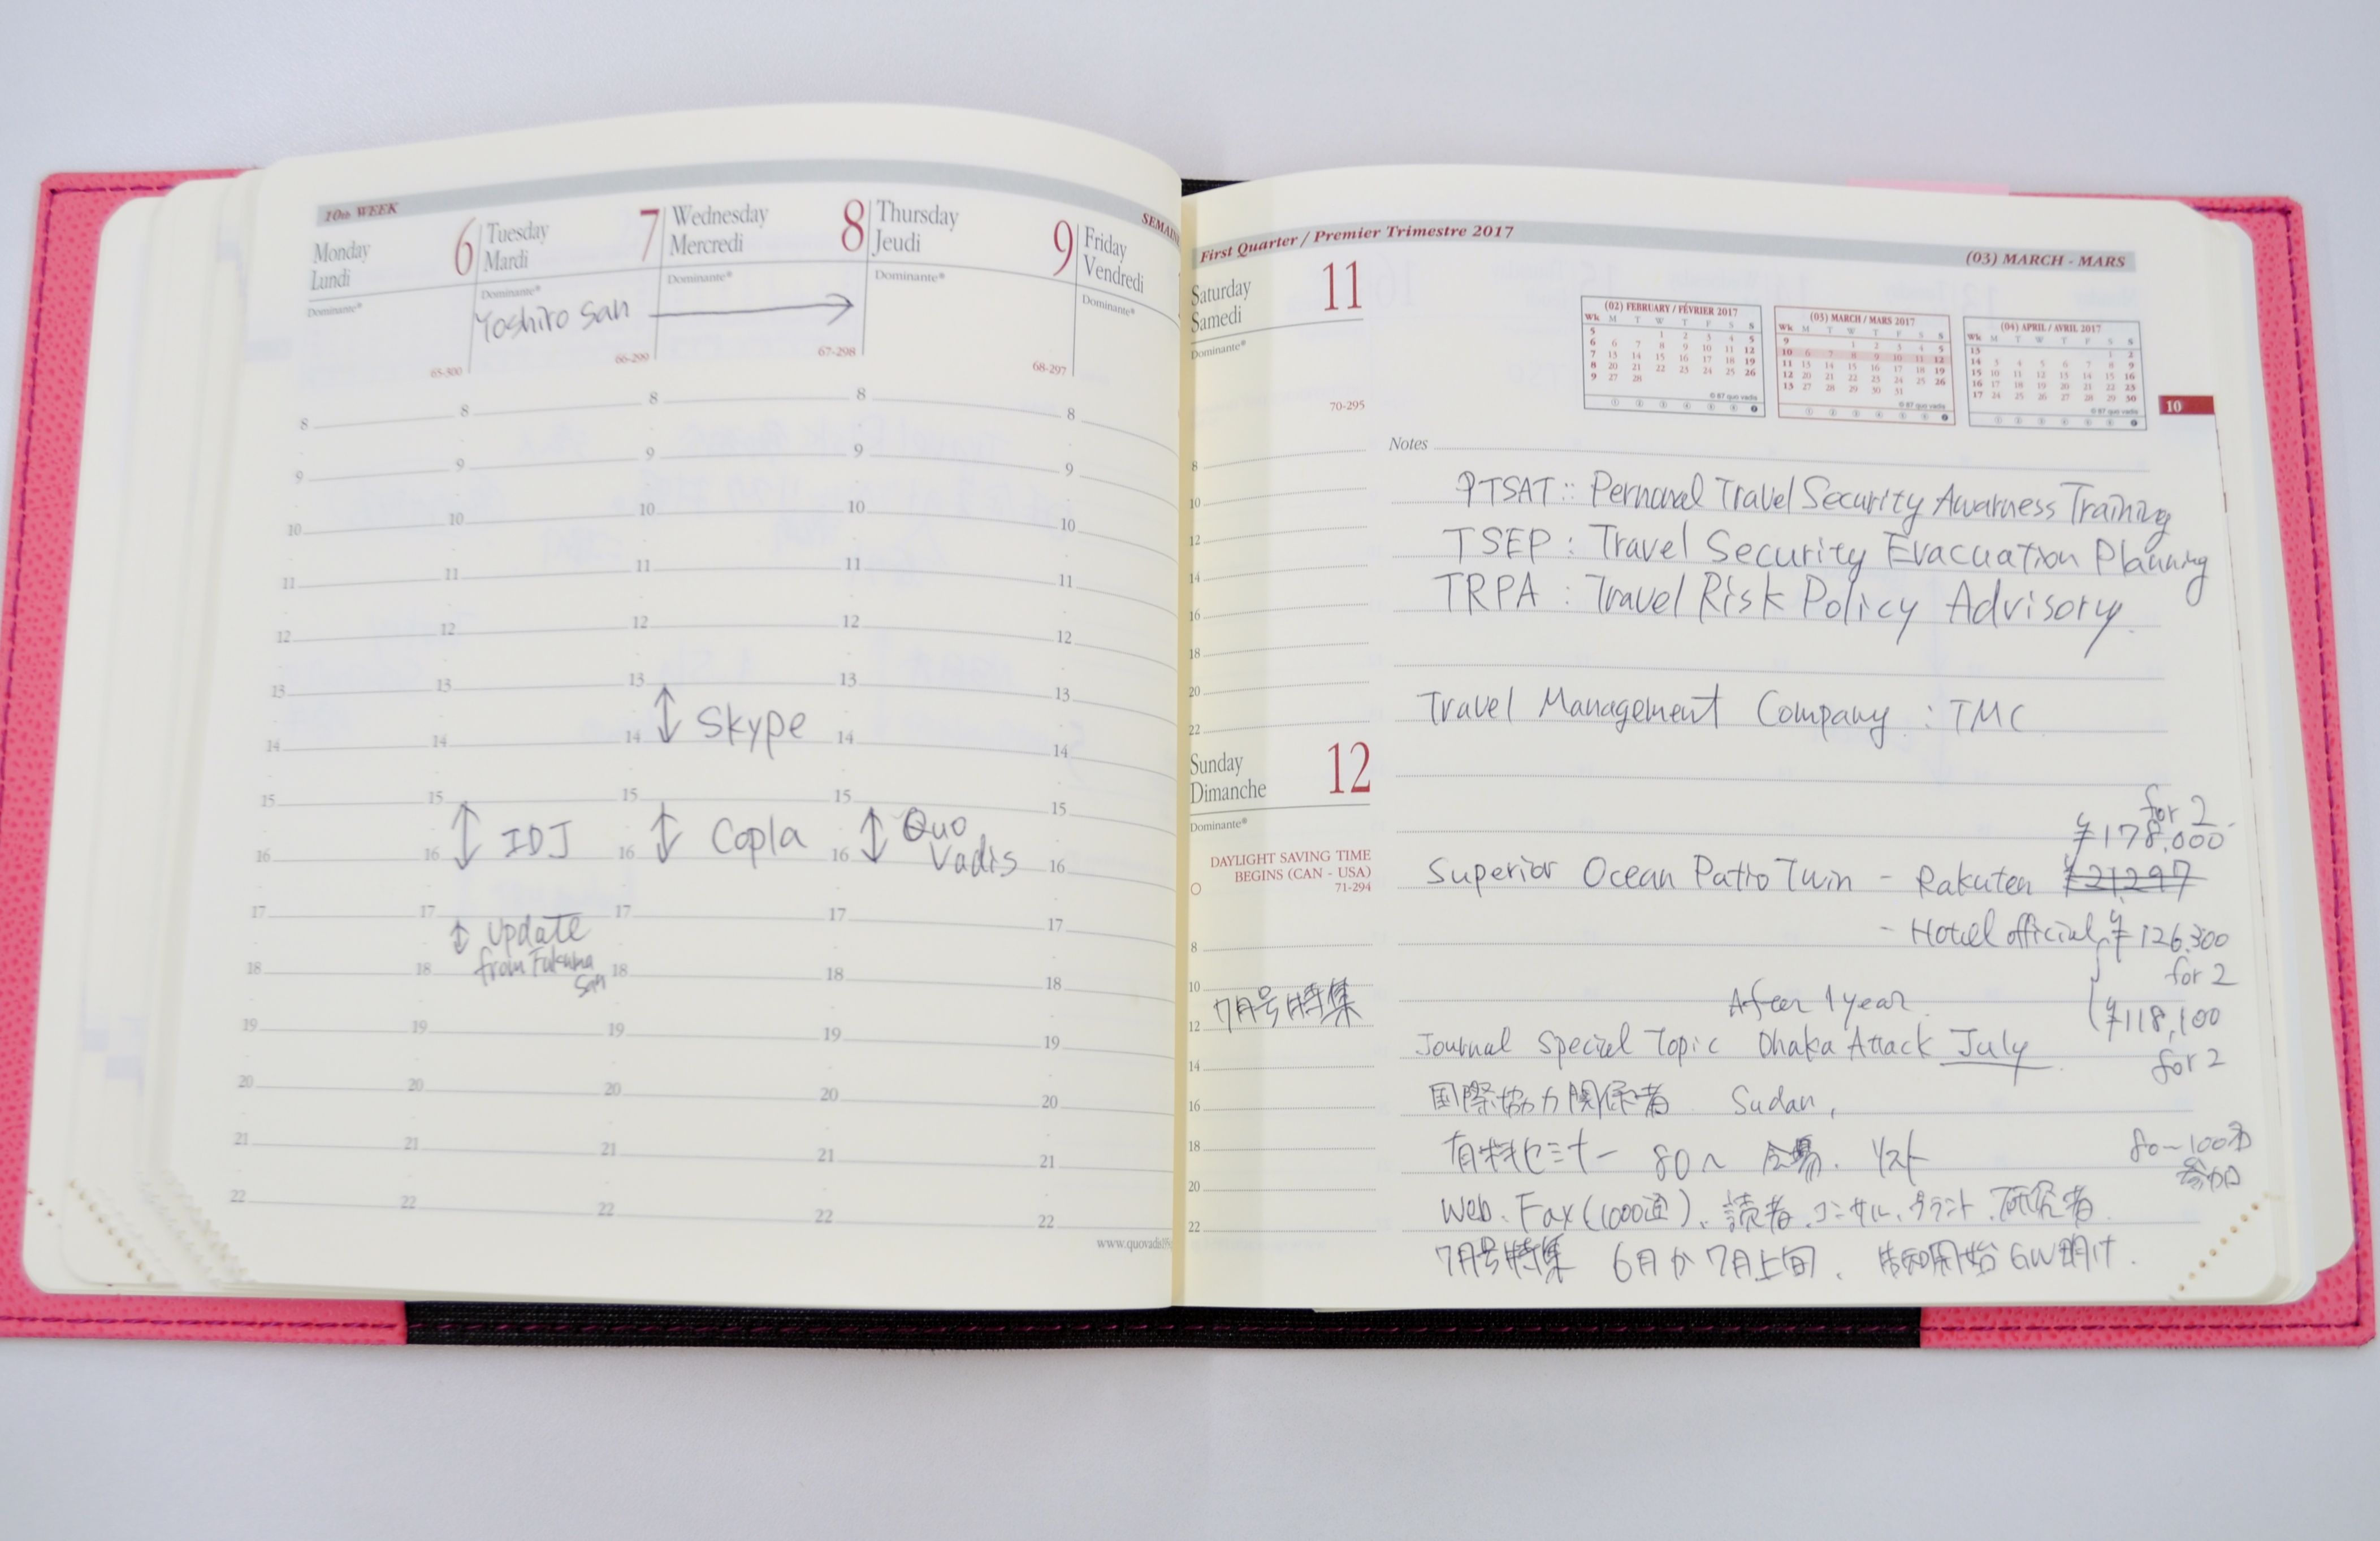 10th WEEK
SEMAIN
Monday
Lundi
6
Tuesday
Mardi
7
Wednesday
Mercredi
8
Thursday
Jeudi
9
Friday
Vendredi
Dominante®
Dominante®
Dominante®
Dominante®
Dominante®
Yoshiro San
65-300
66-299
67-298
68-297
8 8 8 8 8
9 9 9 9 9
10 10 10 10 10
11 11 11 11 11
12 12 12 12 12
13 13 13 13 13
Skype
14 14 14 14 14
15 15 15 15 15
IDJ
Copla
Quo
Vadis
16 16 16 16 16
17 17 17 17 17
Update
from Fukuma
San
18 18 18 18 18
19 19 19 19 19
20 20 20 20 20
21 21 21 21 21
22 22 22 22 22
www.quovadis
First Quarter / Premier Trimestre 2017
(03) MARCH - MARS
Saturday
Samedi
11
Dominante®
70-295
(02) FEBRUARY / FÉVRIER 2017
Wk M T W T F S S
5 1 2 3 4 5
6 6 7 8 9 10 11 12
7 13 14 15 16 17 18 19
8 20 21 22 23 24 25 26
9 27 28
© 87 quo vadis
(03) MARCH / MARS 2017
Wk M T W T F S S
9 1 2 3 4 5
10 6 7 8 9 10 11 12
11 13 14 15 16 17 18 19
12 20 21 22 23 24 25 26
13 27 28 29 30 31
© 87 quo vadis
(04) APRIL / AVRIL 2017
Wk M T W T F S S
13 1 2
14 3 4 5 6 7 8 9
15 10 11 12 13 14 15 16
16 17 18 19 20 21 22 23
17 24 25 26 27 28 29 30
© 87 quo vadis
10
8
10
12
14
16
18
20
22
Sunday
Dimanche
12
Dominante®
DAYLIGHT SAVING TIME
BEGINS (CAN - USA)
71-294
8
10
7月号特集
12
14
16
18
20
22
Notes
PTSAT :: Pernoval Travel Security Awarness Training
TSEP : Travel Security Evacuation Planning
TRPA : Travel Risk Policy Advisory.
Travel Management Company : TMC
for 2
¥178,000
Superior Ocean Patio Twin - Rakuten ¥21,297
- Hotel official ¥126,300
for 2
¥118,100
for 2
After 1 year
Journal Special Topic Dhaka Attack July
国際協力関係者 Sudan,
有料セミナー 80〜 会場. リスト
80〜100名
参加
Web、Fax(1000通)、読者、コンサル、クラント、研究者
7月号特集 6月か7月上旬、告知開始GW明け.